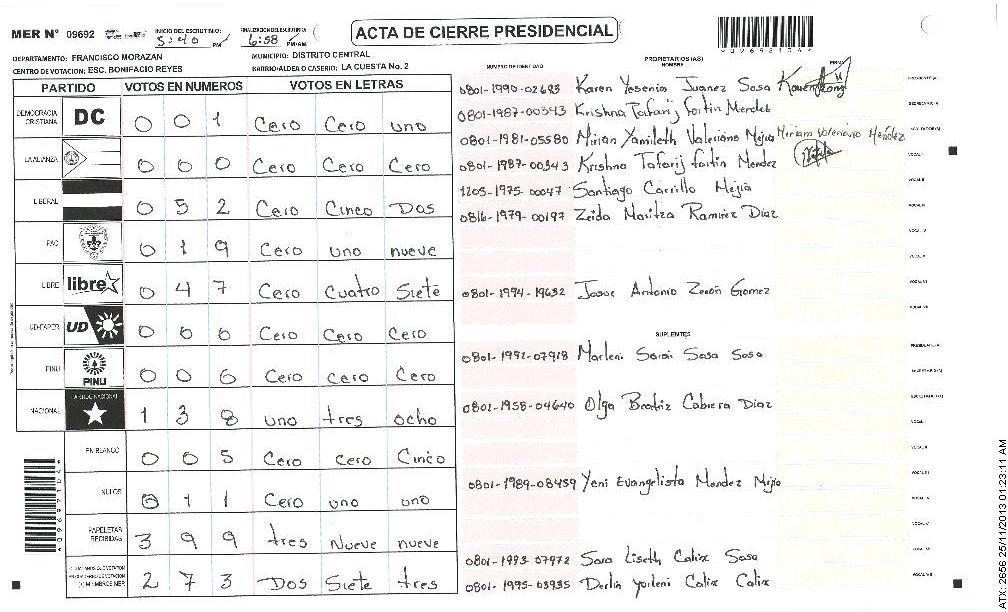 MER N° 09692
INICIO DEL ESCRUTINIO: 5:40 PM
FINALIZACION DEL ESCRUTINIO: 6:58 PM/AM
ACTA DE CIERRE PRESIDENCIAL
DEPARTAMENTO: FRANCISCO MORAZAN
MUNICIPIO: DISTRITO CENTRAL
CENTRO DE VOTACION: ESC. BONIFACIO REYES
BARRIO/ALDEA O CASERIO: LA CUESTA No. 2
PARTIDO VOTOS EN NUMEROS VOTOS EN LETRAS
DEMOCRACIA CRISTIANA DC 0 0 1 Cero Cero uno
LA ALIANZA 0 0 0 Cero Cero Cero
LIBERAL 0 5 2 Cero Cinco Dos
PAC 0 1 9 Cero uno nueve
LIBRE libre 0 4 7 Cero Cuatro Siete
UD-FAPER UD 0 0 0 Cero Cero Cero
PINU PINU 0 0 0 Cero Cero Cero
NACIONAL PARTIDO NACIONAL 1 3 8 uno tres ocho
EN BLANCO 0 0 5 Cero Cero Cinco
NULOS 0 1 1 Cero uno uno
PAPELETAS RECIBIDAS 3 9 9 tres Nueve nueve
2 7 3 Dos Siete tres
NUMERO DE IDENTIDAD
PROPIETARIOS (AS)
NOMBRE
FIRMA
0801-1990-02683 Karen Yesenia Juanez Sosa PRESIDENTE(A)
0801-1987-00343 Krishna Tafarij fortin Mendez SECRETARIO/A
0801-1981-05580 Mirian Yamileth Valeriano Mejia Miriam Valeriano Mendez ESCRUTADOR(A)
0801-1987-00343 Krishna Tafarij fortin Mendez VOCAL I
1205-1975-00047 Santiago Carrillo Mejia VOCAL II
0816-1979-00197 Zeida Maritza Ramirez Diaz VOCAL III
VOCAL IV
VOCAL V
0801-1994-19632 Josue Antonio Zeron Gomez VOCAL VI
VOCAL VII
SUPLENTES
PRESIDENTE/A
0801-1992-07918 Marleni Sarai Sosa Sosa
SECRETARIO(A)
0801-1958-04640 Olga Beatriz Cabrera Diaz ESCRUTADOR(A)
VOCAL I
VOCAL II
0801-1989-08459 Yeni Evangelista Mendez Mejia VOCAL III
VOCAL IV
VOCAL V
0801-1993-07972 Sara Liseth Calix Sosa VOCAL VI
0801-1995-03935 Derlin Yorleni Calix Calix VOCAL VII
ATX-2656 25/11/2013 01:23:11 AM